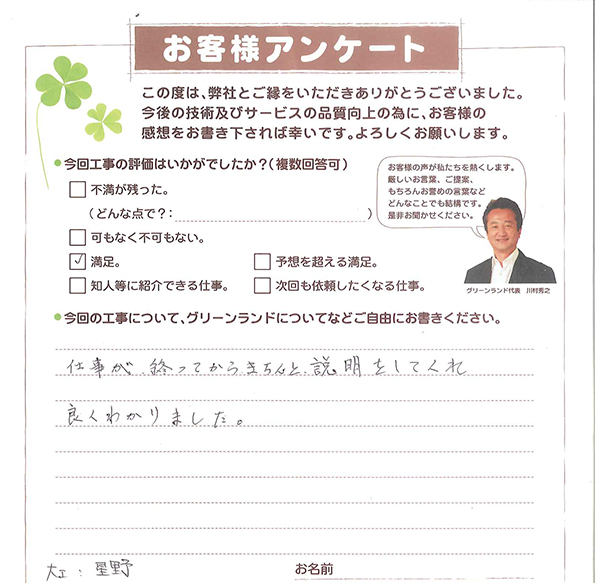 お客様アンケート
この度は、弊社とご縁をいただきありがとうございました。
今後の技術及びサービスの品質向上の為に、お客様の
感想をお書き下されば幸いです。よろしくお願いします。
●今回工事の評価はいかがでしたか?(複数回答可)
□不満が残った。
(どんな点で?: )
□可もなく不可もない。
☑満足。
□予想を超える満足。
□知人等に紹介できる仕事。
□次回も依頼したくなる仕事。
お客様の声が私たちを熱くします。
厳しいお言葉、ご提案、
もちろんお誉めの言葉など
どんなことでも結構です。
是非お聞かせください。
グリーンランド代表 川村秀之
●今回の工事について、グリーンランドについてなどご自由にお書きください。
仕事が、終ってからきちんと、説明をしてくれ
良くわかりました。
大工:星野
お名前